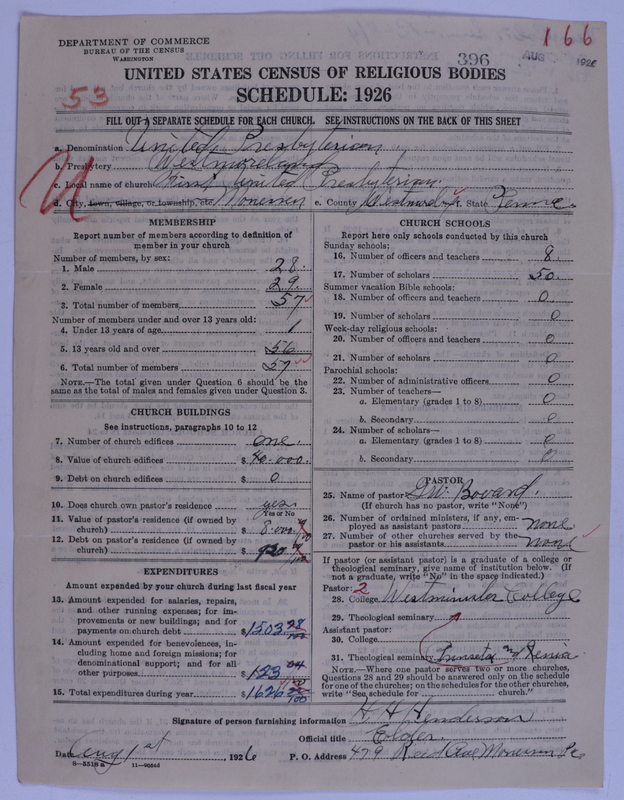 DEPARTMENT OF COMMERCE
BUREAU OF THE CENSUS
WASHINGTON
166
396
AUG 1926
UNITED STATES CENSUS OF RELIGIOUS BODIES
53
SCHEDULE: 1926
FILL OUT A SEPARATE SCHEDULE FOR EACH CHURCH. SEE INSTRUCTIONS ON THE BACK OF THIS SHEET
a. Denomination United Presbyterian
b. Presbytery Westmoreland
c. Local name of church First United Presbyterian
d. City, town, village, or township, etc Monessen e. County Westmold f. State Penna.
MEMBERSHIP
Report number of members according to definition of
member in your church
Number of members, by sex:
1. Male 28.
2. Female 29.
3. Total number of members 57
Number of members under and over 13 years old:
4. Under 13 years of age 1
5. 13 years old and over 56
6. Total number of members 57
NOTE.—The total given under Question 6 should be the
same as the total of males and females given under Question 3.
CHURCH BUILDINGS
See instructions, paragraphs 10 to 12
7. Number of church edifices one.
8. Value of church edifices $ 40.000.
9. Debt on church edifices $ 0
10. Does church own pastor's residence yes
Yes or No
11. Value of pastor's residence (if owned by
church) $ 8.000
12. Debt on pastor's residence (if owned by
church) $ 920
EXPENDITURES
Amount expended by your church during last fiscal year
13. Amount expended for salaries, repairs,
and other running expenses; for im-
provements or new buildings; and for
payments on church debt $ 1503 28/100
14. Amount expended for benevolences, in-
cluding home and foreign missions; for
denominational support; and for all
other purposes $ 123 04/100
15. Total expenditures during year $ 1626
CHURCH SCHOOLS
Report here only schools conducted by this church
Sunday schools:
16. Number of officers and teachers 8
17. Number of scholars 50.
Summer vacation Bible schools:
18. Number of officers and teachers 0
19. Number of scholars 0
Week-day religious schools:
20. Number of officers and teachers 0
21. Number of scholars 0
Parochial schools:
22. Number of administrative officers 0
23. Number of teachers—
a. Elementary (grades 1 to 8) 0
b. Secondary 0
24. Number of scholars—
a. Elementary (grades 1 to 8) 0
b. Secondary 0
PASTOR
25. Name of pastor Bovard.
(If church has no pastor, write "None")
26. Number of ordained ministers, if any, em-
ployed as assistant pastors none
27. Number of other churches served by the
pastor or his assistants none
If pastor (or assistant pastor) is a graduate of a college or
theological seminary, give name of institution below. (If
not a graduate, write "No" in the space indicated.)
Pastor: 2
28. College Westminister College
29. Theological seminary
Assistant pastor:
30. College
31. Theological seminary Xenia
NOTE.—Where one pastor serves two or more churches,
Questions 28 and 29 should be answered only on the schedule
for one of the churches; on the schedules for the other churches,
write "See schedule for church."
Signature of person furnishing information H H Henderson
Official title Elder.
Date Aug 1st, 1926 P. O. Address 479 Reed Ave Monessen Pa
8-5518 a 11-9056